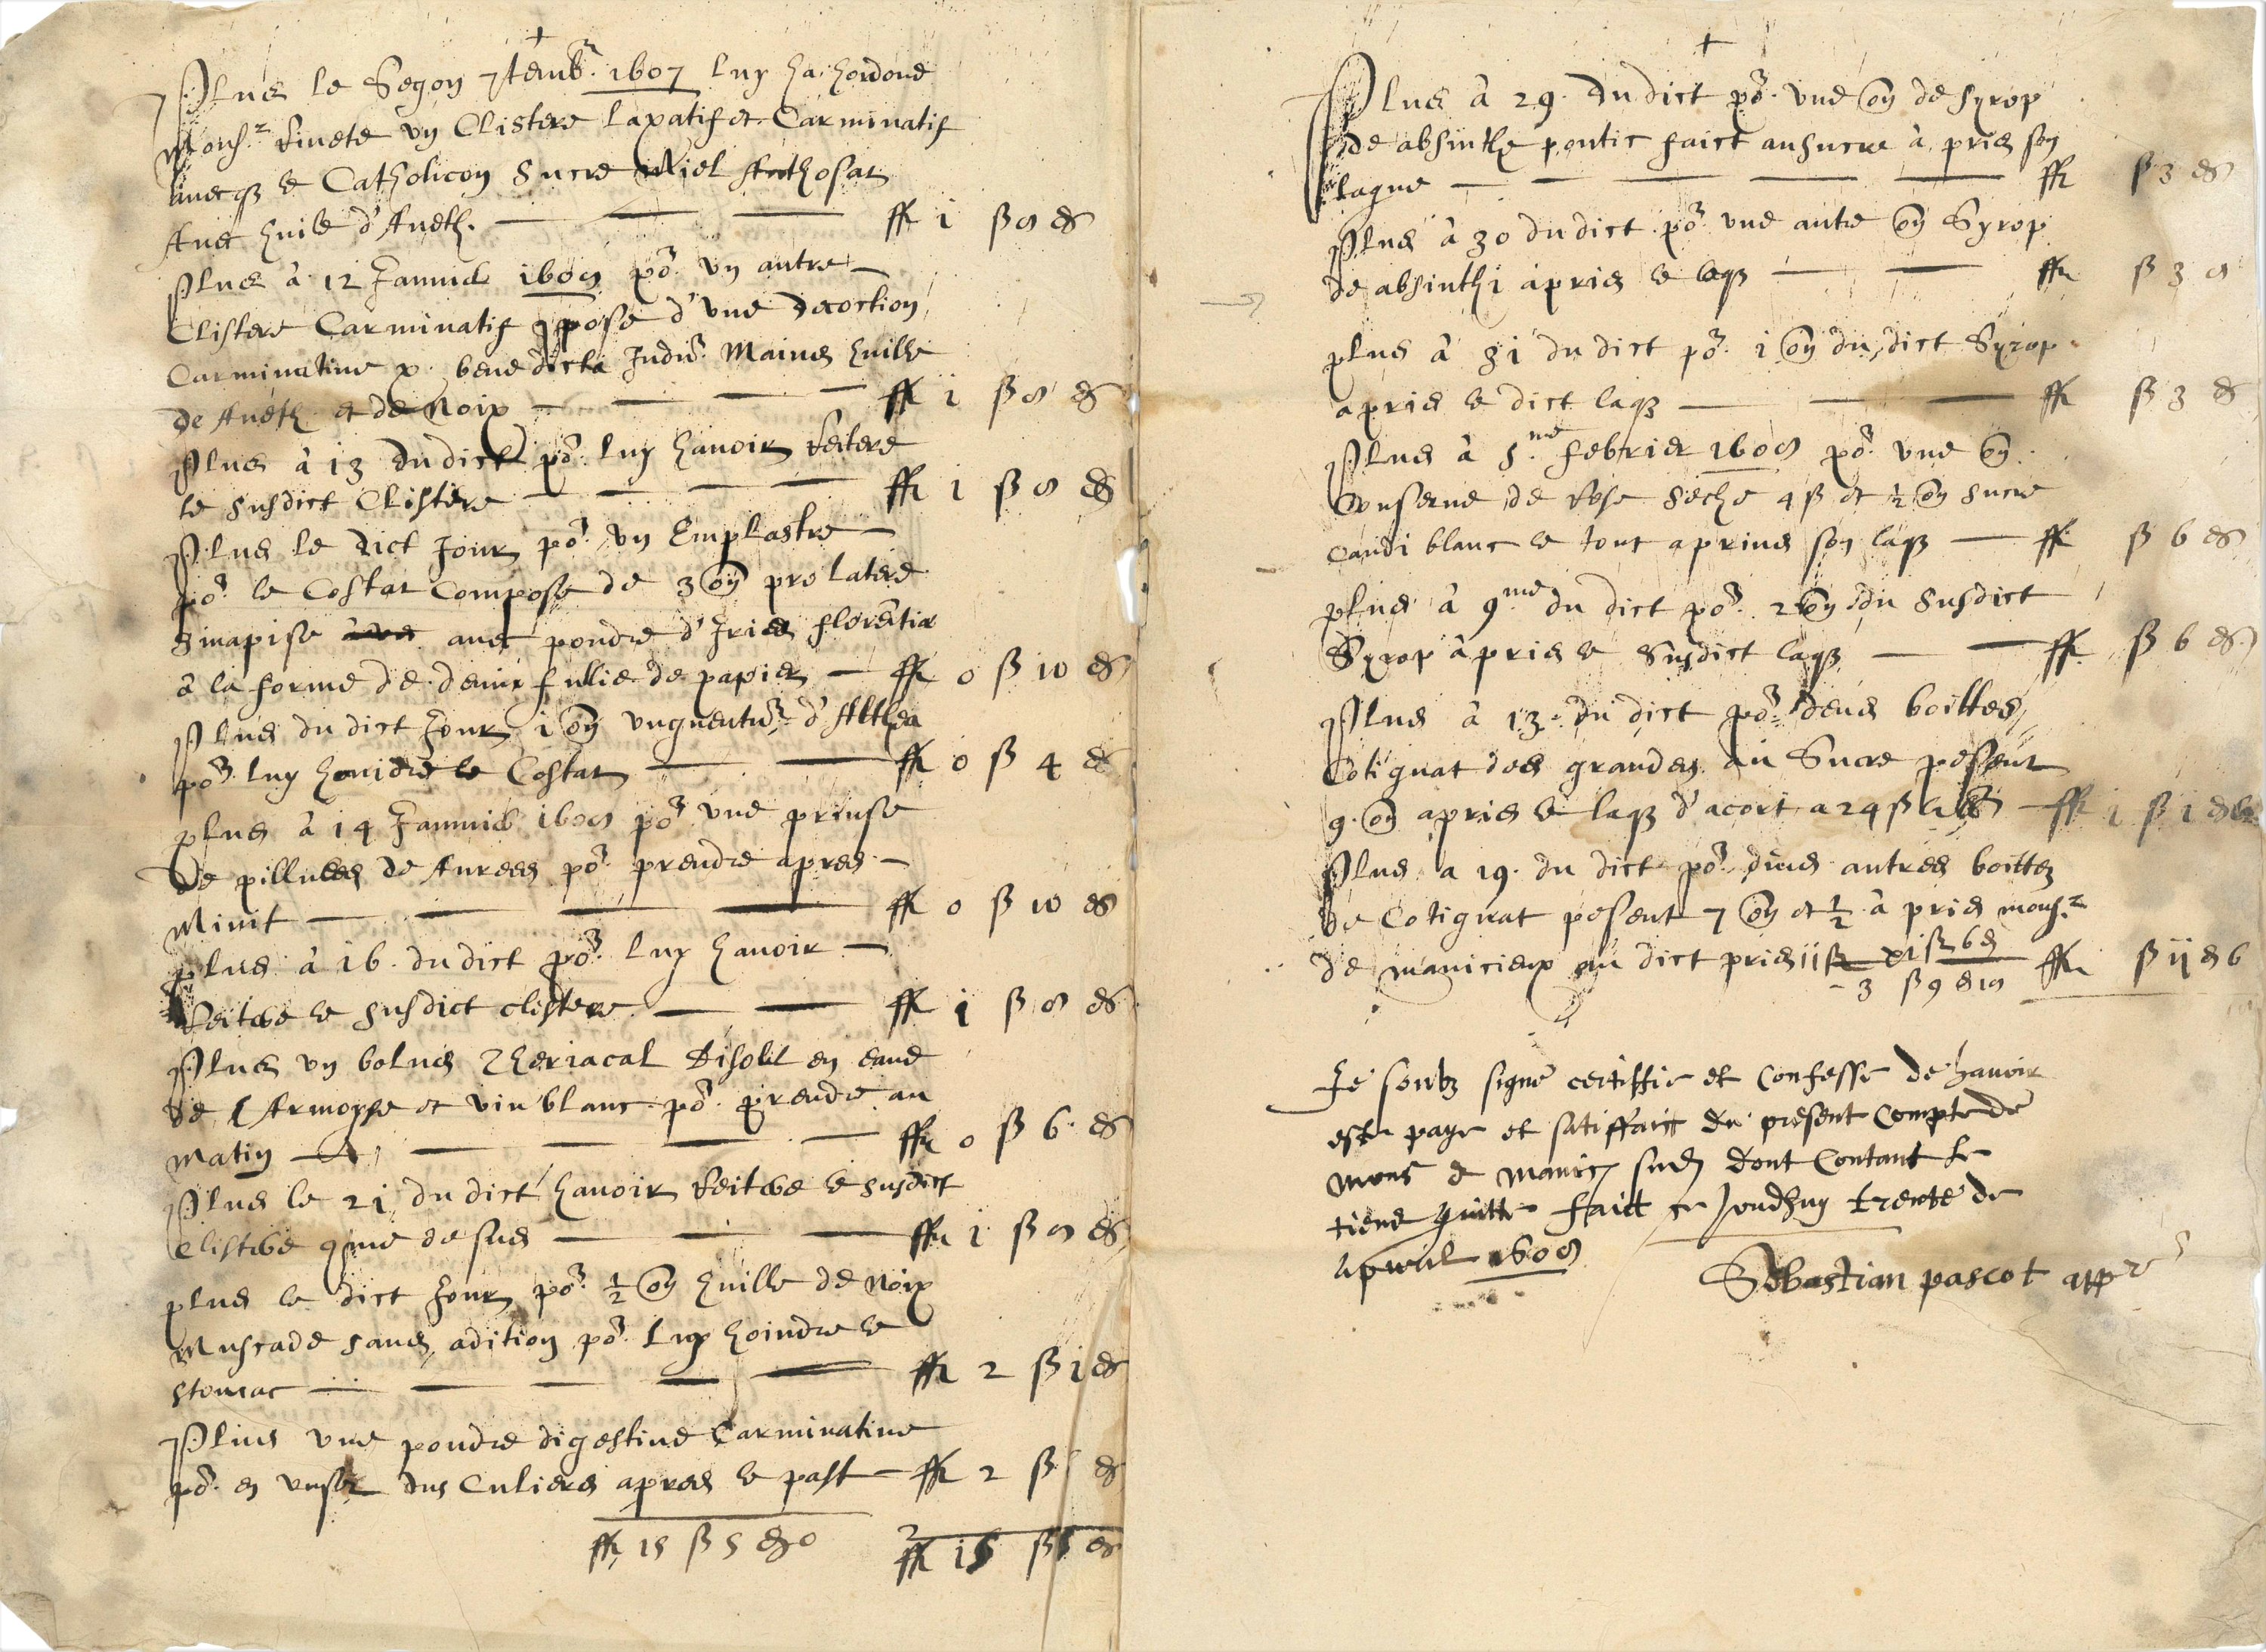 +
Plus le Segon 7tembr. 1607 luy ha hordoné
Monsr. Rivete un Clistere laxatif et Carminatif
avecq le Catholicon Sucre Miel Anthosat
Avec huile d'Aneth. ff 1 ß 8 d
Plus à 12 Jannvié 1608 po. un autre
Clistere Carminatif compose d'une decoction
Carminative benedicta huille
de Aneth et de Noix ff 1 ß 8 d
Plus à 13 du dict po. luy havoir Reiteré
le susdict Clistere ff 1 ß 8 d
Plus le dict Jour po. un Emplastre
po. le Costat Composé de 3 on pro latere
Sinapisé avec poudre d'Iries florentia
à la forme de demix fullie de papier ff 0 ß 10 d
Plus du dict Jour 1 on unguentum d'Althea
po. luy hoindre le Costat ff 0 ß 4 d
plus à 14 Jannvié 1608 po. une prinse
de pillules de Aurees po. prendre apres
Minit ff 0 ß 10 d
plus à 16. du dict po. luy havoir
Reiteré le susdict clistere ff 1 ß 8 d
Plus un bolus Theriacal disolu en eaue
de Armoyse et vin blanc po. prendre au
Matin ff 0 ß 6 d
Plus le 21 du dict havoir Reiteré le susdict
Clisteré comme desus ff 1 ß 8 d
plus le dict Jour po. 1/2 on huille de Noix
Muscade sans adition po. luy hoindre le
Stomac ff 2 ß 1 d
Plius une poudre digestive Carminative
po. en unser dus Culieres apres le past ff 2 ß d
ff 15 ß 5 d 0 ff 15 ß 5 d
+
Plus à 29. du dict po. une on de syrop
de absinthe pontic faict au sucre à pris son
laque ff ß 3 d
Plus à 30 du dict po. une autre on Syrop
de absinthi apries le laq ff ß 3 d
plus à 31 du dict po. 1 on du dict Syrop
apries le dict laq ff ß 3 d
Plus à 5.me febrier 1608 po. une on
Conserve de Rose seche 4 ß et 1/2 on sucre
candi blanc le tout a prins son laq ff ß 6 d
plus à 9.me du dict po. 2 on du susdict
Syrop apries le Susdict laq ff ß 6 d
Plus à 13. du dict po. deus boittes
Cotignat des grandes au Sucre pesent
9. on apries le laq d'acort a 24 ß ff 1 ß 1 d
Plus a 19. du dict po. deus autres boittes
de Cotignat pesent 7 on et 1/2 à pris monsr.
de manicieux au dict pries ff ß 11 d 6
3 ß 9 d
Je soubz signé certiffie et Confesse de havoir
este paye et satiffaict du present Compte de
mons de Manic sud dont Contant le
tiens quitte faict ce Jourdhuy trente de
apvril 1608
Sebastian pascot appre